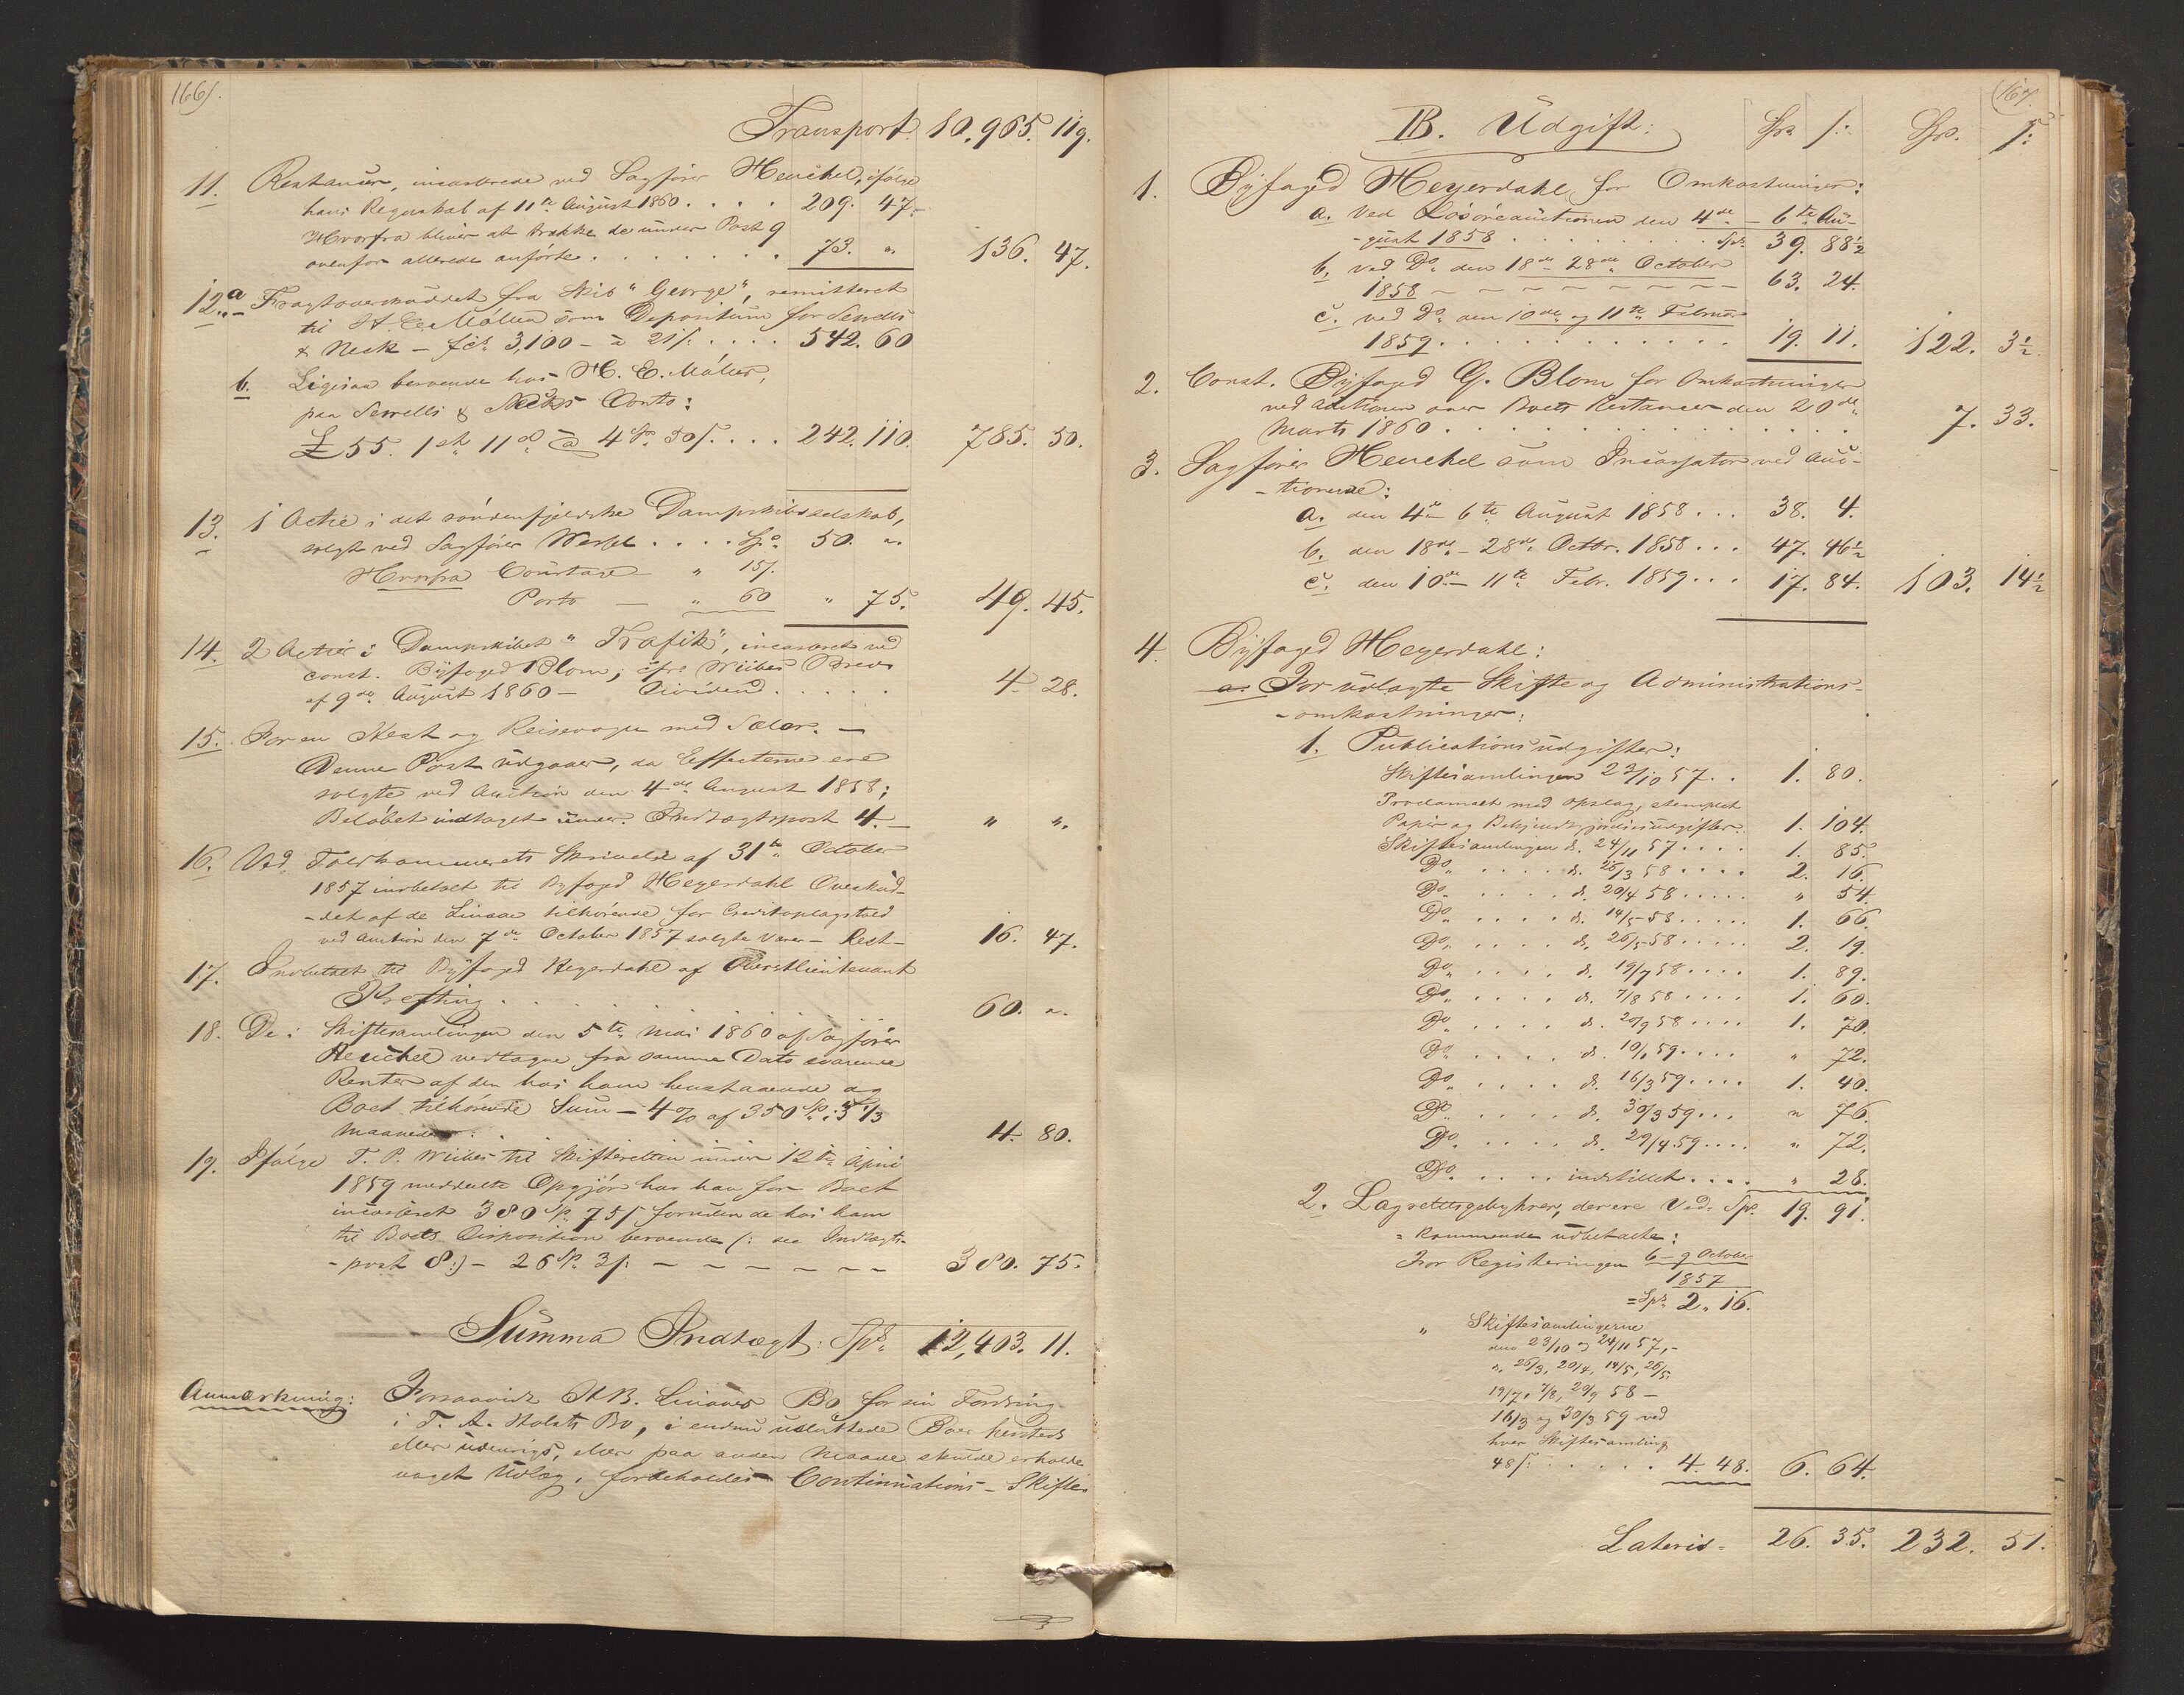 166).
Transport 10,965. 119.
11. Restancer, incasserede ved Sagfører Heuchel, ifølge
hans Regnskab af 11te August 1860 . . . . 209. 47.
Hvorfra bliver at trække de under Post 9
ovenfor allerede anførte . . . . . . . 73. " 136. 47.
12. a Fragtoverskuddet fra Skib "George", remitteret
til H. E. Møller som Depositum for Sewells
& Neck – fcs 3,100 – à 21 f. . . . . 542. 60
b. Ligesaa beroende hos H. E. Møller,
paa Sewells & Necks Conto:
£ 55. 1 sh 11 d à 4 Sp. 50 f. . . . 242. 110. 785. 50.
13. 1 Actie i det søndenfjeldske Dampskibsselskab,
solgt ved Sagfører Wessel . . . . Sp. 50. "
Hvorfra Courtage – " 15 f.
Porto – " 60 " 75. 49. 45.
14. 2 Actier i Dampskibet "Trafik", incasseret ved
const. Byfoged Blom; Wiibes Brev
af 9de August 1860 – Dividend . . . . . 4. 28.
15. For en Hest og Reisevogn med Sæler. –
Denne Post udgaaer, da Effecterne ere
solgte ved Auction den 4de August 1858;
Beløbet indtaget under Indtægtspost 4. – " ".
16. Ved Toldkammerets Skrivelse af 31te October
1857 indbetalt til Byfoged Heyerdahl Overskud-
-det af de Linaae tilhørende, for Creditoplagstold
ved Auction den 7de October 1857 solgte Varer – Rest – 16. 47.
17. Indbetalt til Byfoged Heyerdahl af Oberstlieutenant
Krefting . . . . . . . 60. "
18. De i Skiftesamlingen den 5te Mai 1860 af Sagfører
Heuchel vedtagne fra samme Dato svarende
Renter af den hos ham henstaaende og
Boet tilhørende Sum – 4 % af 350 Sp. i 3 1/3
Maaneder . . . 4. 80.
19. Ifølge T. P. Wiibes til Skifteretten under 12te April
1859 meddeelte Opgjør har han for Boet
incasseret 380 Sp. 75 f foruden de hos ham
til Boets Disposition beroende (: see Indtægts-
-post 8:) – 26 Sp. 3 f. – – – – – – 380. 75.
Summa Indtægt: Spd. 12,403. 11.
Anmærkning: Forsaavidt H B. Linaaes Bo for sin Fordring
i T. A. Bo, i endnu usluttede Boer hersteds
eller udenrigs, eller paa anden Maade skulde erholde
noget Udlæg, forbeholdes Continuations – Skifte.
167.
B. Udgift: Sp. f: Sp. f:
1. Byfoged Heyerdahl, for Omkostninger:
a. Ved Løsøreauctionen den 4de – 6te Au-
-gust 1858 . . . . . . . . Spd. 39. 88½
b. ved Do den 18de – 28de October
1858 – – – – – – – – – 63. 24.
c. ved Do den 10de og 11te Februar
1859 . . . . . . . . . . . 19. 11. 122. 3½
2. Const. Byfoged G. Blom for Omkostninger
ved Auctionen over Boets Restancer den 20de
Marts 1860 . . . . . . . . . . . . . . . 7. 33.
3. Sagfører Heuchel som Incassator ved Auc-
-tionerne:
a. den 4de – 6te August 1858 . . . 38. 4.
b. den 18de – 28de Octbr. 1858 . . . 47. 46½
c. den 10de – 11te Febr. 1859 . . . 17. 84. 103. 14½
4. Byfoged Heyerdahl:
a. For udlagte Skifte og Administrations-
-omkostninger:
1. Publicationsudgifter:
Skiftesamlingen 23/10 57 . . 1. 80.
Proclamaet med Opslag, stemplet
Papir og Bekjendtgjørelsesudgifter. 1. 104.
Skiftesamlingen d. 24/11 57 . . . . 1. 85.
Do . . . . d. 26/3 58 . . . . 2. 16.
Do . . . . d. 20/4 58 . . . . . " 54.
Do . . . . d. 14/5 58 . . . . . 1. 66.
Do . . . . d. 26/5 58 . . . . . 2. 19.
Do . . . . d. 19/7 58 . . . . 1. 89.
Do . . . . d. 7/8 58 . . . . 1. 60.
Do . . . . d. 20/9 58 . . . . 1. 70.
Do . . . . d. 10/1 59 . . . . " 72.
Do . . . . d. 16/3 59 . . . . 1. 40.
Do . . . . d. 30/3 59 . . . " 76.
Do . . . . d. 29/4 59 . . . . " 72.
Do . . . . indstillet . . . . " 28.
2. Lagrettesgebyhrer, der ere Ved- Spd. 19. 91.
= kommende udbetalte:
For Registeringen 6 – 9 October
1857
= Spd. 2. 16.
" Skiftesamlingerne
den 23/10 og 24/11 57, –
". 26/3, 20/4, 14/5, 26/5
19/7, 7/8, 20/9 58 –
16/3 og 30/3 59 ved
hver Skiftesamling
48 f: . . . . . 4. 48. 6. 64.
Lateris = 26. 35. 232. 51.